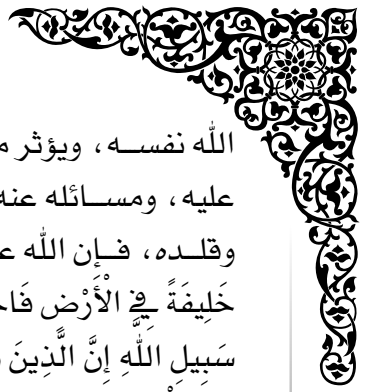 الله نفسه، ويؤثر
عليه، ومسائله عنه
وقلده، فإن الله
خَلِيفَةً فِي الْأَرْضِ
سَبِيلِ اللَّهِ إِنَّ الَّذِينَ